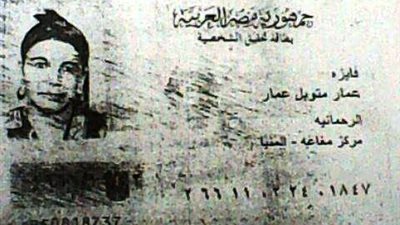 جمهورية مصر العربية
بطاقة تحقيق الشخصية
فايزه
عمار متويل عمار
الرحمانيه
مركز مغاغه - المنيا
٢ ٦٦ ١١ ٠٢ ٢٤ ٠١٨٤٧